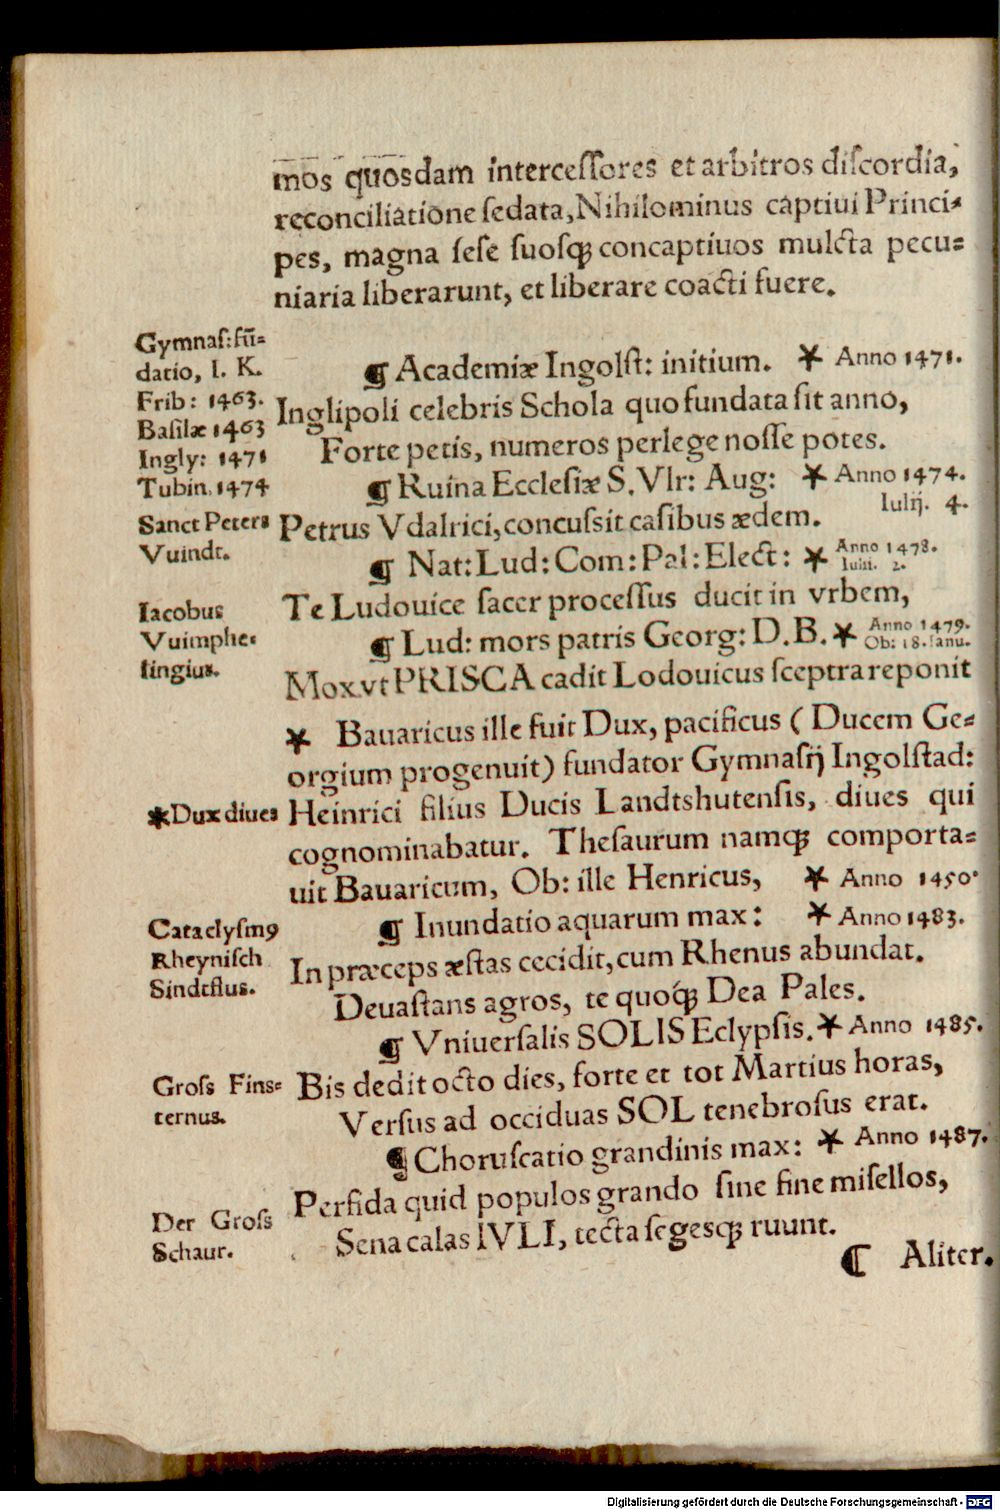 mos quosdam intercessores et arbitros discordia,
reconciliatione sedata, Nihilominus captiui Princi-
pes, magna sese suosq; concaptiuos mulcta pecu-
niaria liberarunt, et liberare coacti fuere.
Gymnas: fũ-
datio, I. K.
Frib: 1463.
Basilæ 1463
Ingly: 1471
Tubin. 1474
¶ Academiæ Ingolst: initium. * Anno 1471.
Inglipoli celebris Schola quo fundata sit anno,
Forte petis, numeros perlege nosse potes.
¶ Ruina Ecclesiæ S. Vlr: Aug: * Anno 1474.
Iulij. 4.
Sanct Peters
Vuindt.
Petrus Vdalrici, concussit casibus ædem.
¶ Nat: Lud: Com: Pal: Elect: * Anno 1478.
Iulii. 2.
Iacobus
Vuimphe-
lingius.
Te Ludouice sacer processus ducit in vrbem,
¶ Lud: mors patris Georg: D. B. * Anno 1479.
Ob: 18. Ianu.
Mox vt PRISCA cadit Lodouicus sceptra reponit
* Bauaricus ille fuit Dux, pacificus ( Ducem Ge-
orgium progenuit) fundator Gymnasij Ingolstad:
*Dux diues
Heinrici filius Ducis Landtshutensis, diues qui
cognominabatur. Thesaurum namq; comporta-
uit Bauaricum, Ob: ille Henricus, * Anno 1450.
Cataclysmꝰ
Rheynisch
Sindtflus.
¶ Inundatio aquarum max: * Anno 1483.
In præceps æstas cecidit, cum Rhenus abundat.
Deuastans agros, te quoq́; Dea Pales.
¶ Vniuersalis SOLIS Eclypsis. * Anno 1485.
Gross Fins-
ternus.
Bis dedit octo dies, forte et tot Martius horas,
Versus ad occiduas SOL tenebrosus erat.
¶ Choruscatio grandinis max: * Anno 1487.
Der Gross
Schaur.
Perfida quid populos grando sine fine misellos,
Sena calas IVLI, tecta segesq; ruunt.
¶ Aliter.
Digitalisierung gefördert durch die Deutsche Forschungsgemeinschaft - DFG